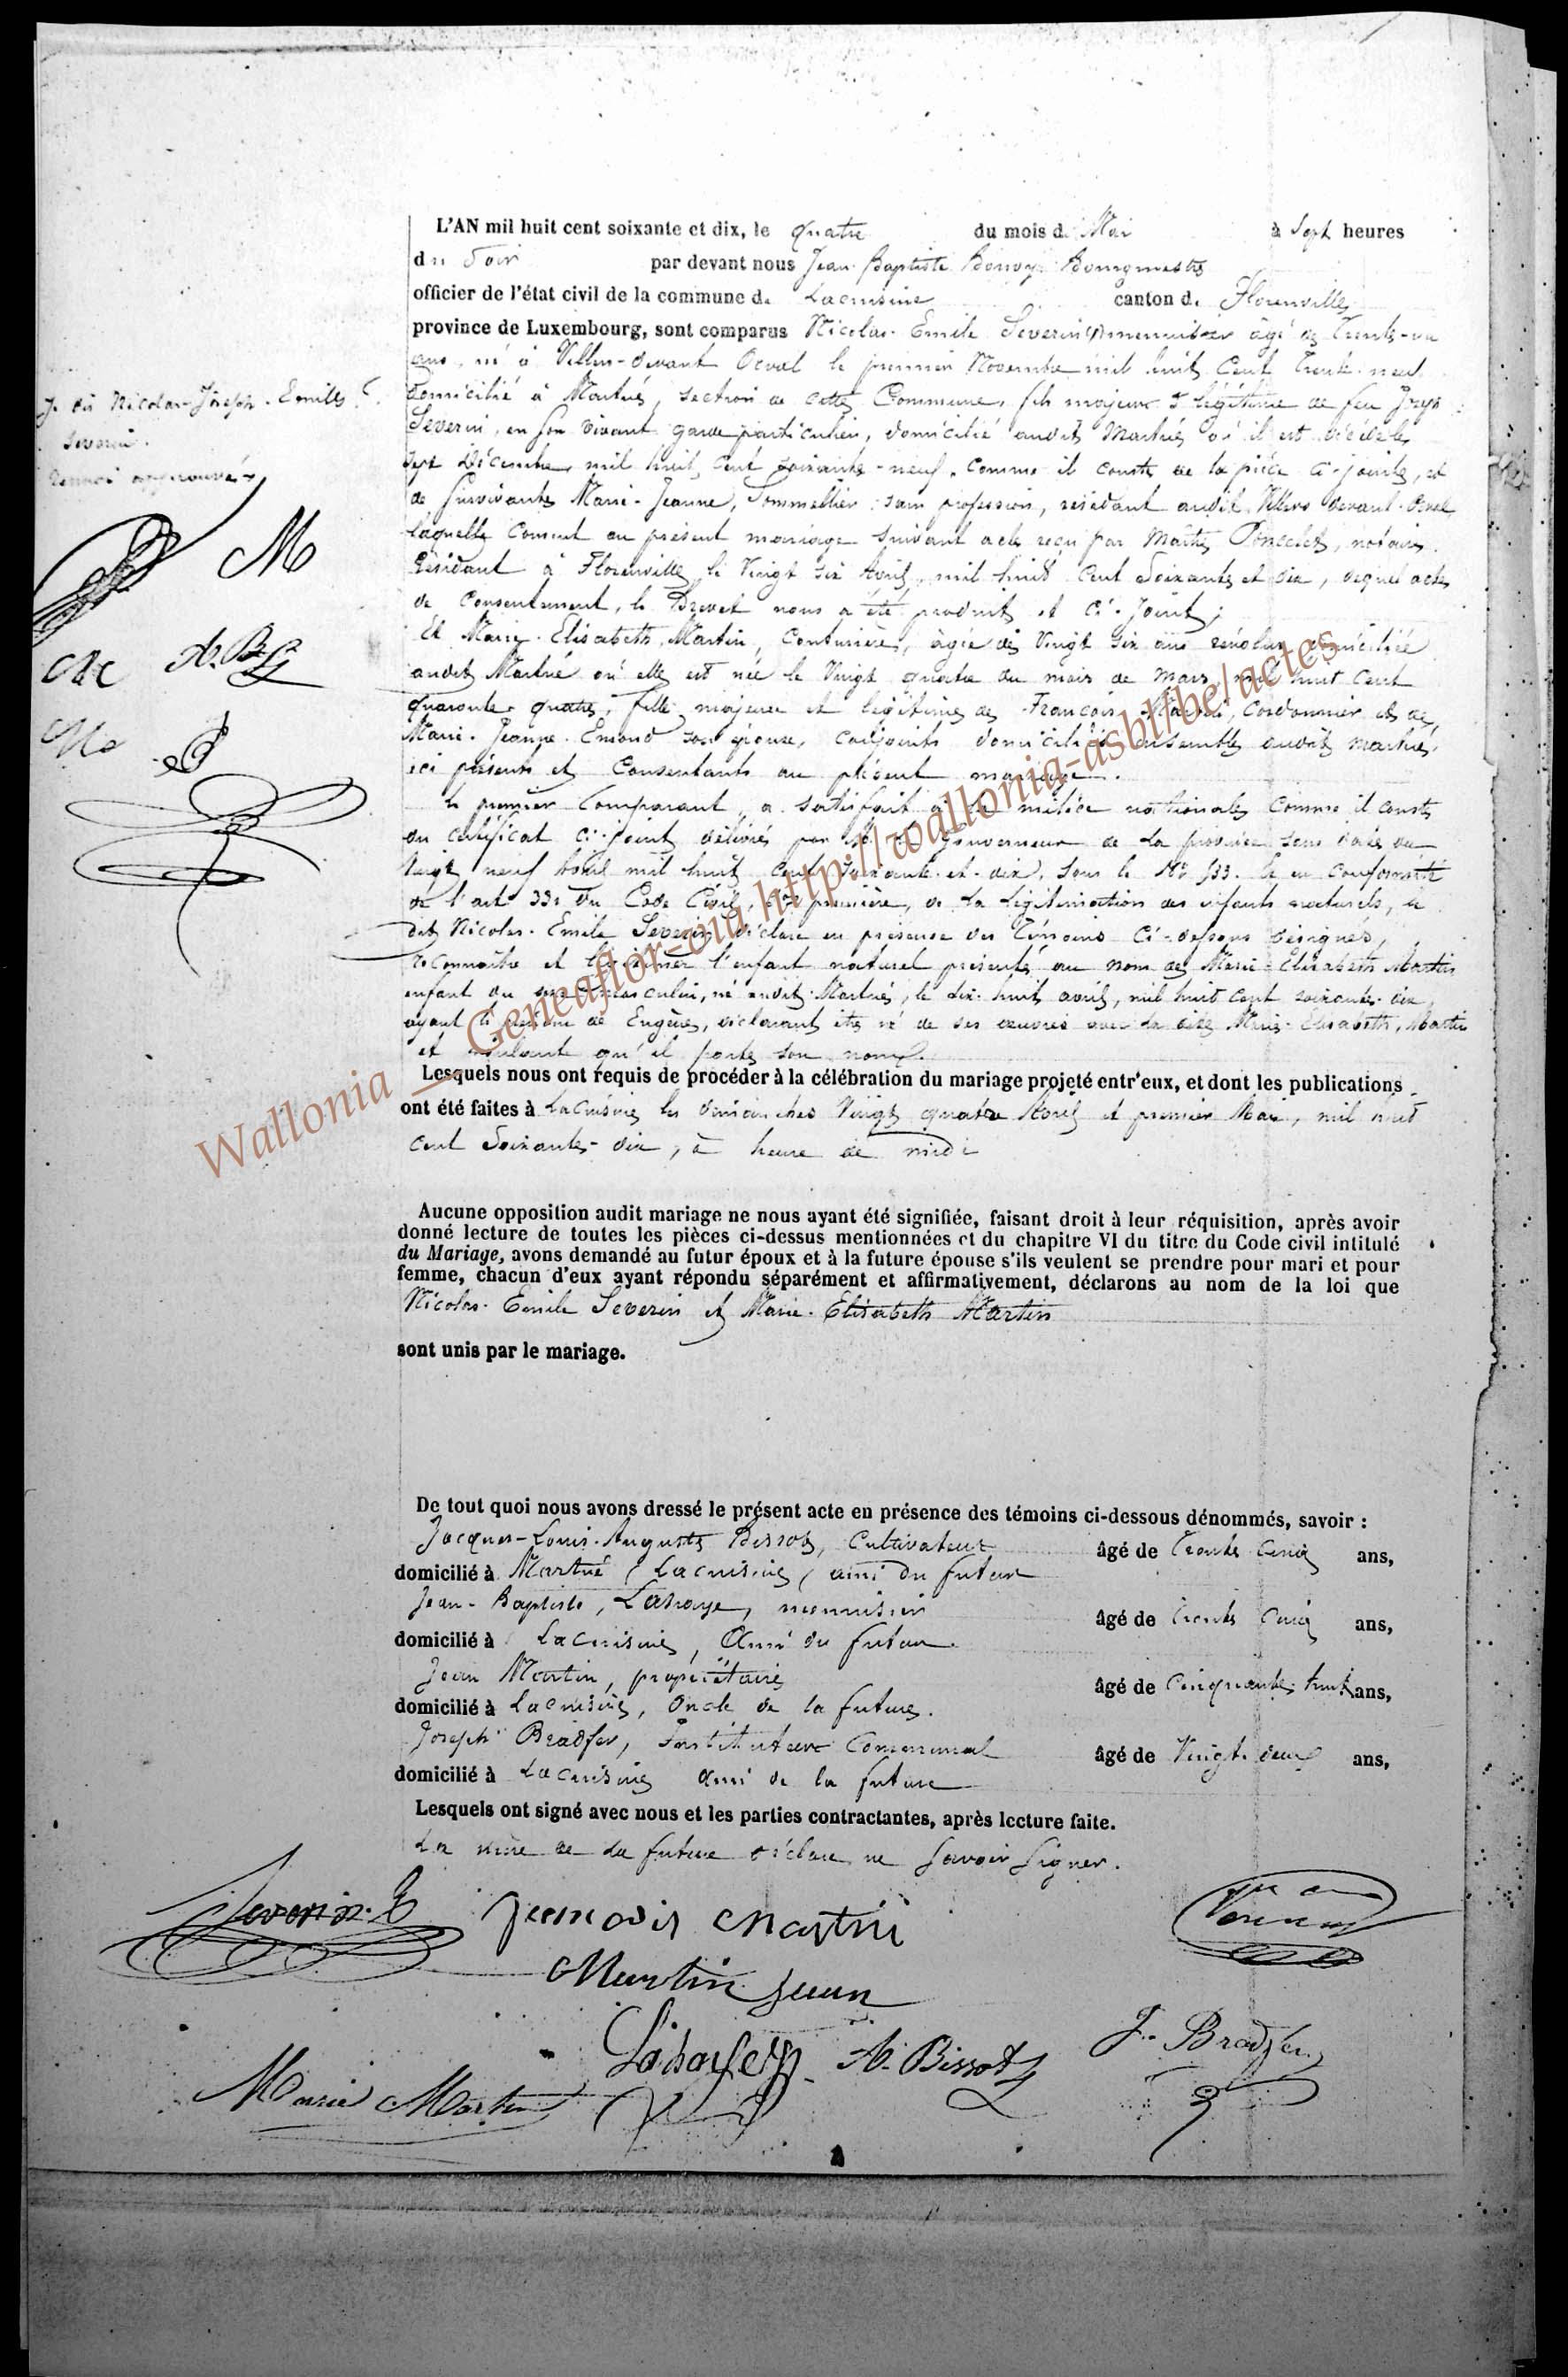 L'AN mil huit cent soixante et dix, le quatre du mois d. Mai à Sept heures
du Soir par devant nous Jean Baptiste Bourgmestre
officier de l'état civil de la commune d. Lacuisine canton d. Florenville
province de Luxembourg, sont comparus Nicolas-Emile Severin menuisier âgé de Trente-un
ans, né à Villers-devant Orval le premier Novembre mil huit Cent Trente-neuf
J. dit Nicolas-Joseph-Emile
Severin.
Renvoi approuvé
domicilié à Martué, section de cette Commune, fils majeur & légitime de feu Joseph
Severin, en son vivant garde particulier, domicilié audit Martué où il est décédé le
sept Décembre mil huit cent soixante-neuf, comme il conste de la pièce ci-jointe, et
de survivante Marie-Jeanne, Sommellier sans profession, résidant audit Villers devant-Orval
laquelle consent au présent mariage suivant acte reçu par Maître Poncelet, notaire
Résidant à Florenville le Vingt six Avril, mil huit Cent Soixante et dix, duquel acte
de Consentement, le Brevet nous a été produit et Ci-Joint;
Et Marie-Elisabeth Martin, Couturière, âgée de Vingt six ans révolus domiciliée
audit Martué où elle est née le Vingt quatre du mois de Mars mil huit Cent
quarante-quatre, fille majeure et légitime de François Martin, Cordonnier et de
Marie-Jeanne-Emond son épouse, conjoints domiciliés ensemble audit Martué,
ici présents et Consentants au présent mariage.
Le premier Comparant, a satisfait à la milice nationale Comme il conste
du certificat Ci-joint délivré par Mr le Gouverneur de la province sous date du
Vingt neuf Avril mil huit cent soixante-et-dix, sous le No 133. Et en Conformité
de l'art 331 du Code Civil, première, de la légitimation des enfants naturels, le
dit Nicolas-Emile Severin déclare en présence des Témoins Ci-dessous désignés,
reconnaître et légitimer l'enfant naturel présenté au nom de Marie-Elisabeth Martin
enfant du sexe masculin, né audit Martué, le dix-huit avril, mil huit cent soixante-dix,
ayant le prénom de Eugène, déclarant être né de ses œuvres avec la dite Marie-Elisabeth, Martin
et qu'il porte son nom.
M
A. B
Lesquels nous ont requis de procéder à la célébration du mariage projeté entr'eux, et dont les publications
ont été faites à Lacuisine les dimanches Vingt quatre Avril et premier Mai, mil huit
cent Soixante-dix, à heure de midi
Aucune opposition audit mariage ne nous ayant été signifiée, faisant droit à leur réquisition, après avoir
donné lecture de toutes les pièces ci-dessus mentionnées et du chapitre VI du titre du Code civil intitulé
du Mariage, avons demandé au futur époux et à la future épouse s'ils veulent se prendre pour mari et pour
femme, chacun d'eux ayant répondu séparément et affirmativement, déclarons au nom de la loi que
Nicolas-Emile Severin et Marie-Elisabeth Martin
sont unis par le mariage.
De tout quoi nous avons dressé le présent acte en présence des témoins ci-dessous dénommés, savoir :
Jacques-Louis-Auguste Bissot, Cultivateur âgé de Trente Cinq ans,
domicilié à Martué (Lacuisine) ami du futur
Jean-Baptiste, Lahaye, menuisier âgé de Trente Cinq ans,
domicilié à Lacuisine, Ami du futur.
Jean Martin, propriétaire âgé de Cinquante huit ans,
domicilié à Lacuisine, Oncle de la future.
Joseph Bradfer, Instituteur Communal âgé de Vingt-deux ans,
domicilié à Lacuisine ami de la future
Lesquels ont signé avec nous et les parties contractantes, après lecture faite.
La mère de la future déclare ne Savoir Signer.
Severin. E
francois Martin
Martin Jean
Lahaye
A. Bissot
J. Bradfer
Marie Martin
Wallonia __ Geneaflor-oia http://wallonia-asbl!be/actes